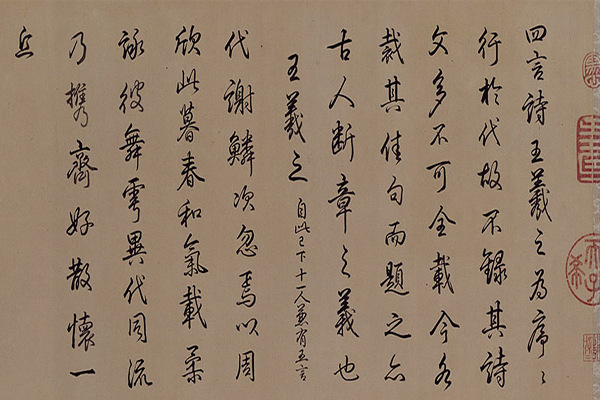 四言詩王羲之為序〻
行於代故不錄其詩
文多不可全載今各
裁其佳句而題之亦
古人断章之義也
王羲之 自此已下十一人兼有五言
代謝鱗次忽焉以周
欣此暮春和氣載柔
詠彼舞雩異代同流
乃攜齊好散懷一
丘